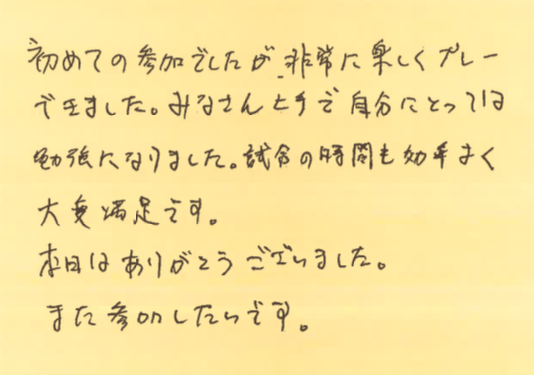 初めての参加でしたが、非常に楽しくプレー
できました。みなさん上手で自分にとっては
勉強になりました。試合の時間も効率よく
大変満足です。
本日はありがとうございました。
また参加したいです。